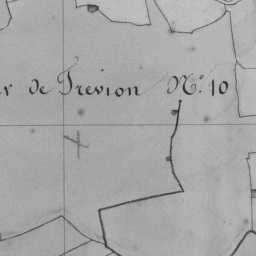 de Trevion N.° 10